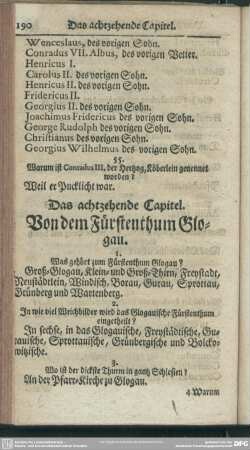 190 Das achtzehende Capitel.
Wenceslaus, des vorigen Sohn.
Conradus VII. Albus, des vorigen Vetter.
Henricus I.
Carolus II. des vorigen Sohn.
Henricus II. des vorigen Sohn.
Fridericus II.
Georgius II. des vorigen Sohn.
Joachimus Fridericus des vorigen Sohn.
George Rudolph des vorigen Sohn.
Christianus des vorigen Sohn.
Georgius Wilhelmus des vorigen Sohn.
55.
Warum ist Conradus III. der Hertzog, Köberlein genennet
worden?
Weil er Pucklicht war.
Das achtzehende Capitel.
Von dem Fürstenthum Glo-
gau.
1.
Was gehört zum Fürstenthum Glogau?
Groß-Glogau, Klein- und Groß-Thirn, Freystadt,
Neustädtlein, Windisch-Borau, Gurau, Sprottau,
Grünberg und Wartenberg.
2.
In wie viel Weichbilder wird das Glogauische Fürstenthum
eingetheilt?
In sechse, in das Glogauische, Freystädtische, Gu-
rauische, Sprottauische, Grünbergische und Bolcko-
witzische.
3.
Wo ist der dickste Thurm in gantz Schlesien?
An der Pfarr-Kirche zu Glogau.
4 Warum